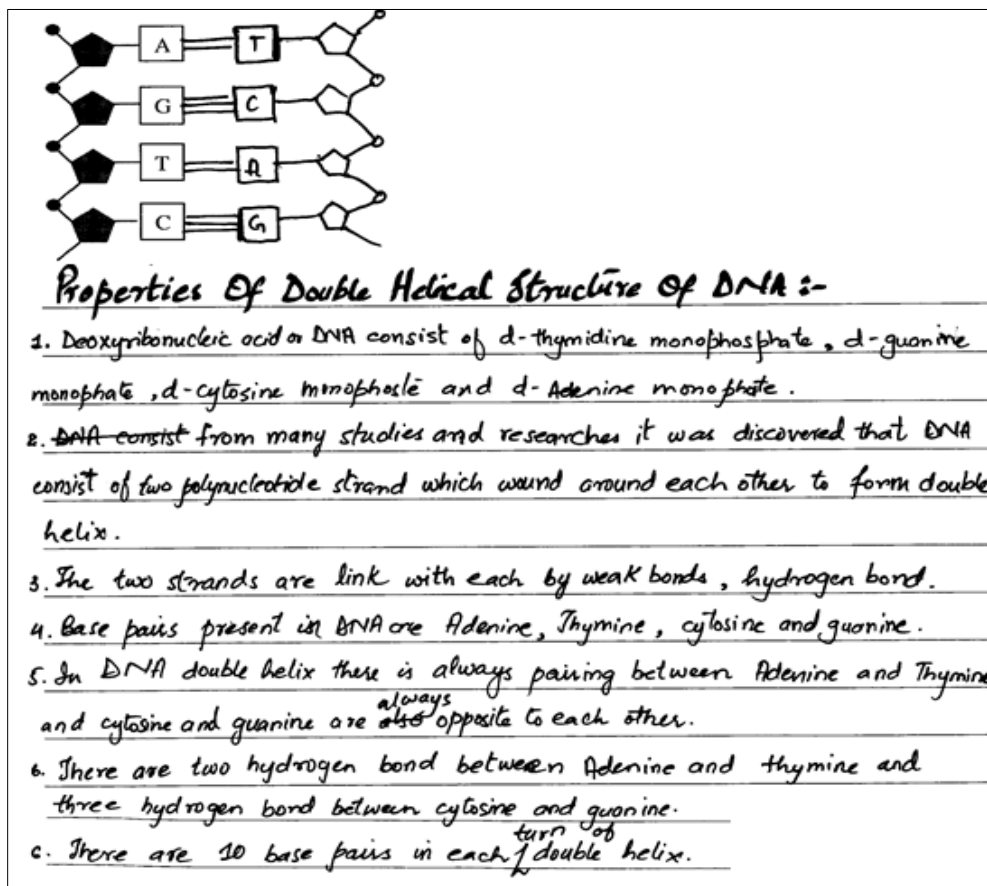 A T
G C
T A
C G
Properties Of Double Helical Structure Of DNA :-
1. Deoxyribonucleic acid or DNA consist of d-thymidine monophosphate, d-guanine
monophate, d-cytosine monophoste and d-Adenine monophate.
2. DNA consist from many studies and researches it was discovered that DNA
consist of two polynucleotide strand which wound around each other to form double
helix.
3. The two strands are link with each by weak bonds, hydrogen bond.
4. Base pairs present in DNA are Adenine, Thymine, cytosine and guanine.
5. In DNA double helix there is always pairing between Adenine and Thymine
and cytosine and guanine are also always opposite to each other.
6. There are two hydrogen bond between Adenine and thymine and
three hydrogen bond between cytosine and guanine.
c. There are 10 base pairs in each turn of double helix.